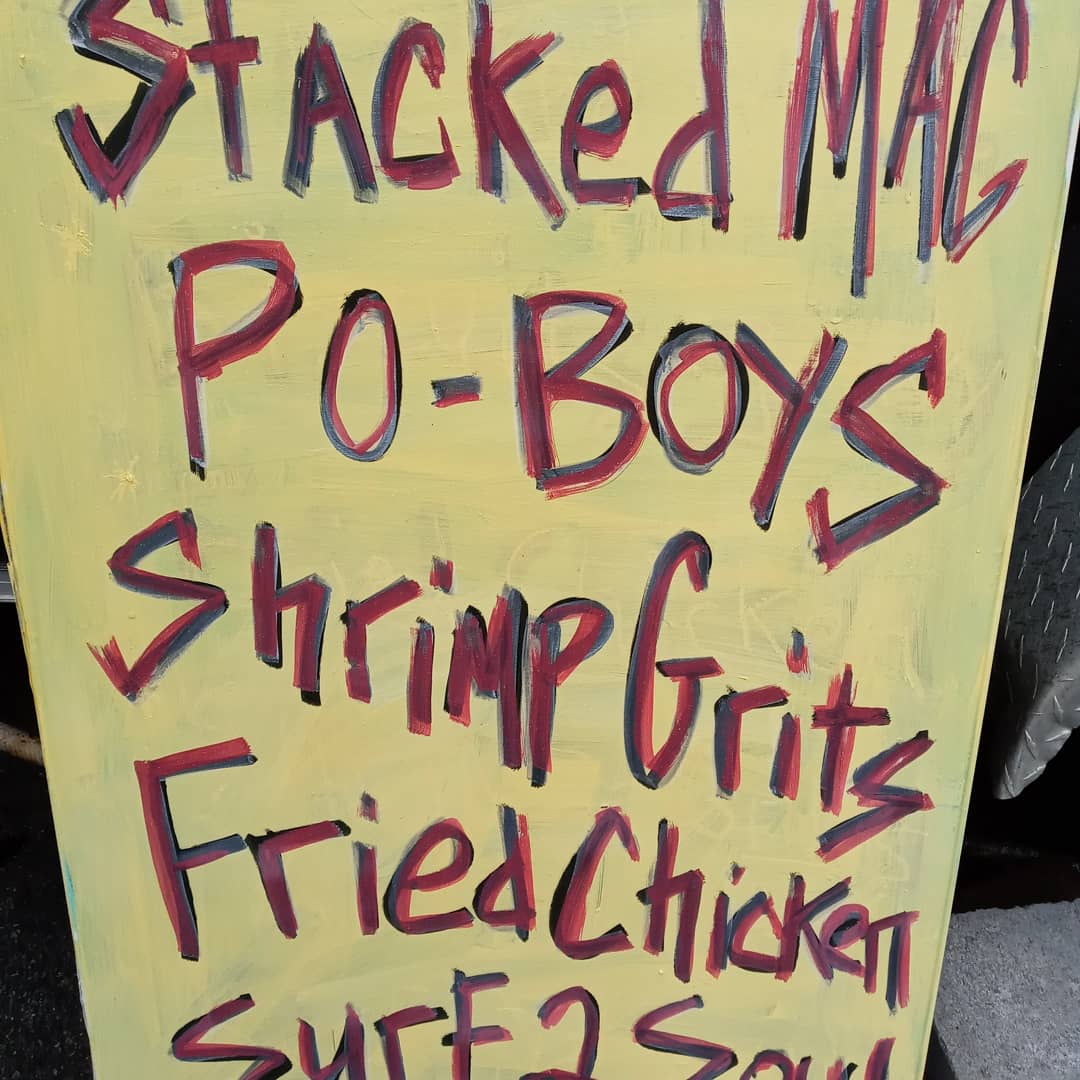 Stacked MAC
PO-BOYS
Shrimp Grits
Fried Chicken
Surf 2 Soul